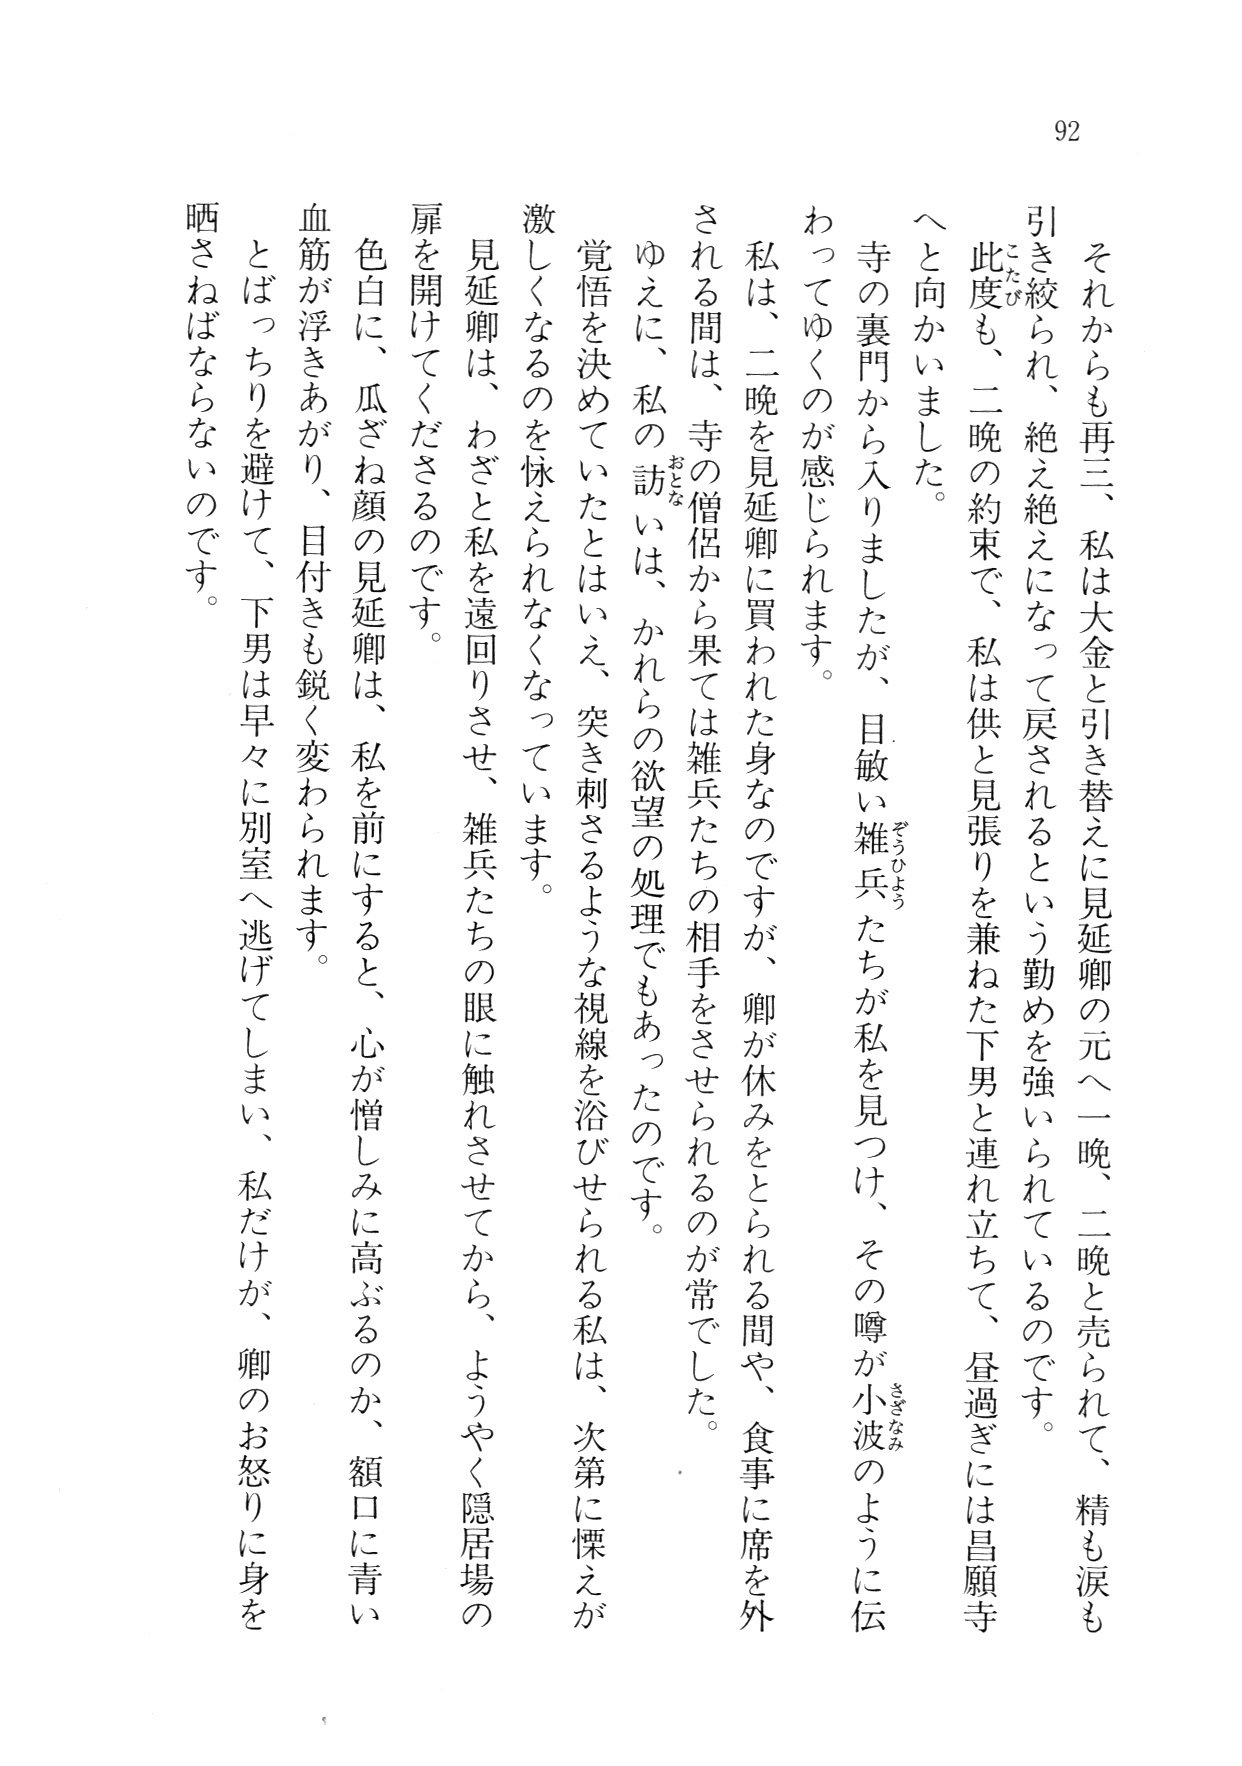 92
それからも再三、私は大金と引き替えに見延卿の元へ一晩、二晩と売られて、精も涙も
引き絞られ、絶え絶えになって戻されるという勤めを強いられているのです。
此度も、二晩の約束で、私は供と見張りを兼ねた下男と連れ立ちて、昼過ぎには昌願寺
へと向かいました。
寺の裏門から入りましたが、目敏い雑兵たちが私を見つけ、その噂が小波のように伝
わってゆくのが感じられます。
私は、二晩を見延卿に買われた身なのですが、卿が休みをとられる間や、食事に席を外
される間は、寺の僧侶から果ては雑兵たちの相手をさせられるのが常でした。
ゆえに、私の訪いは、かれらの欲望の処理でもあったのです。
覚悟を決めていたとはいえ、突き刺さるような視線を浴びせられる私は、次第に慄えが
激しくなるのを怺えられなくなっています。
見延卿は、わざと私を遠回りさせ、雑兵たちの眼に触れさせてから、ようやく隠居場の
扉を開けてくださるのです。
色白に、瓜ざね顔の見延卿は、私を前にすると、心が憎しみに高ぶるのか、額口に青い
血筋が浮きあがり、目付きも鋭く変わられます。
とばっちりを避けて、下男は早々に別室へ逃げてしまい、私だけが、卿のお怒りに身を
晒さねばならないのです。